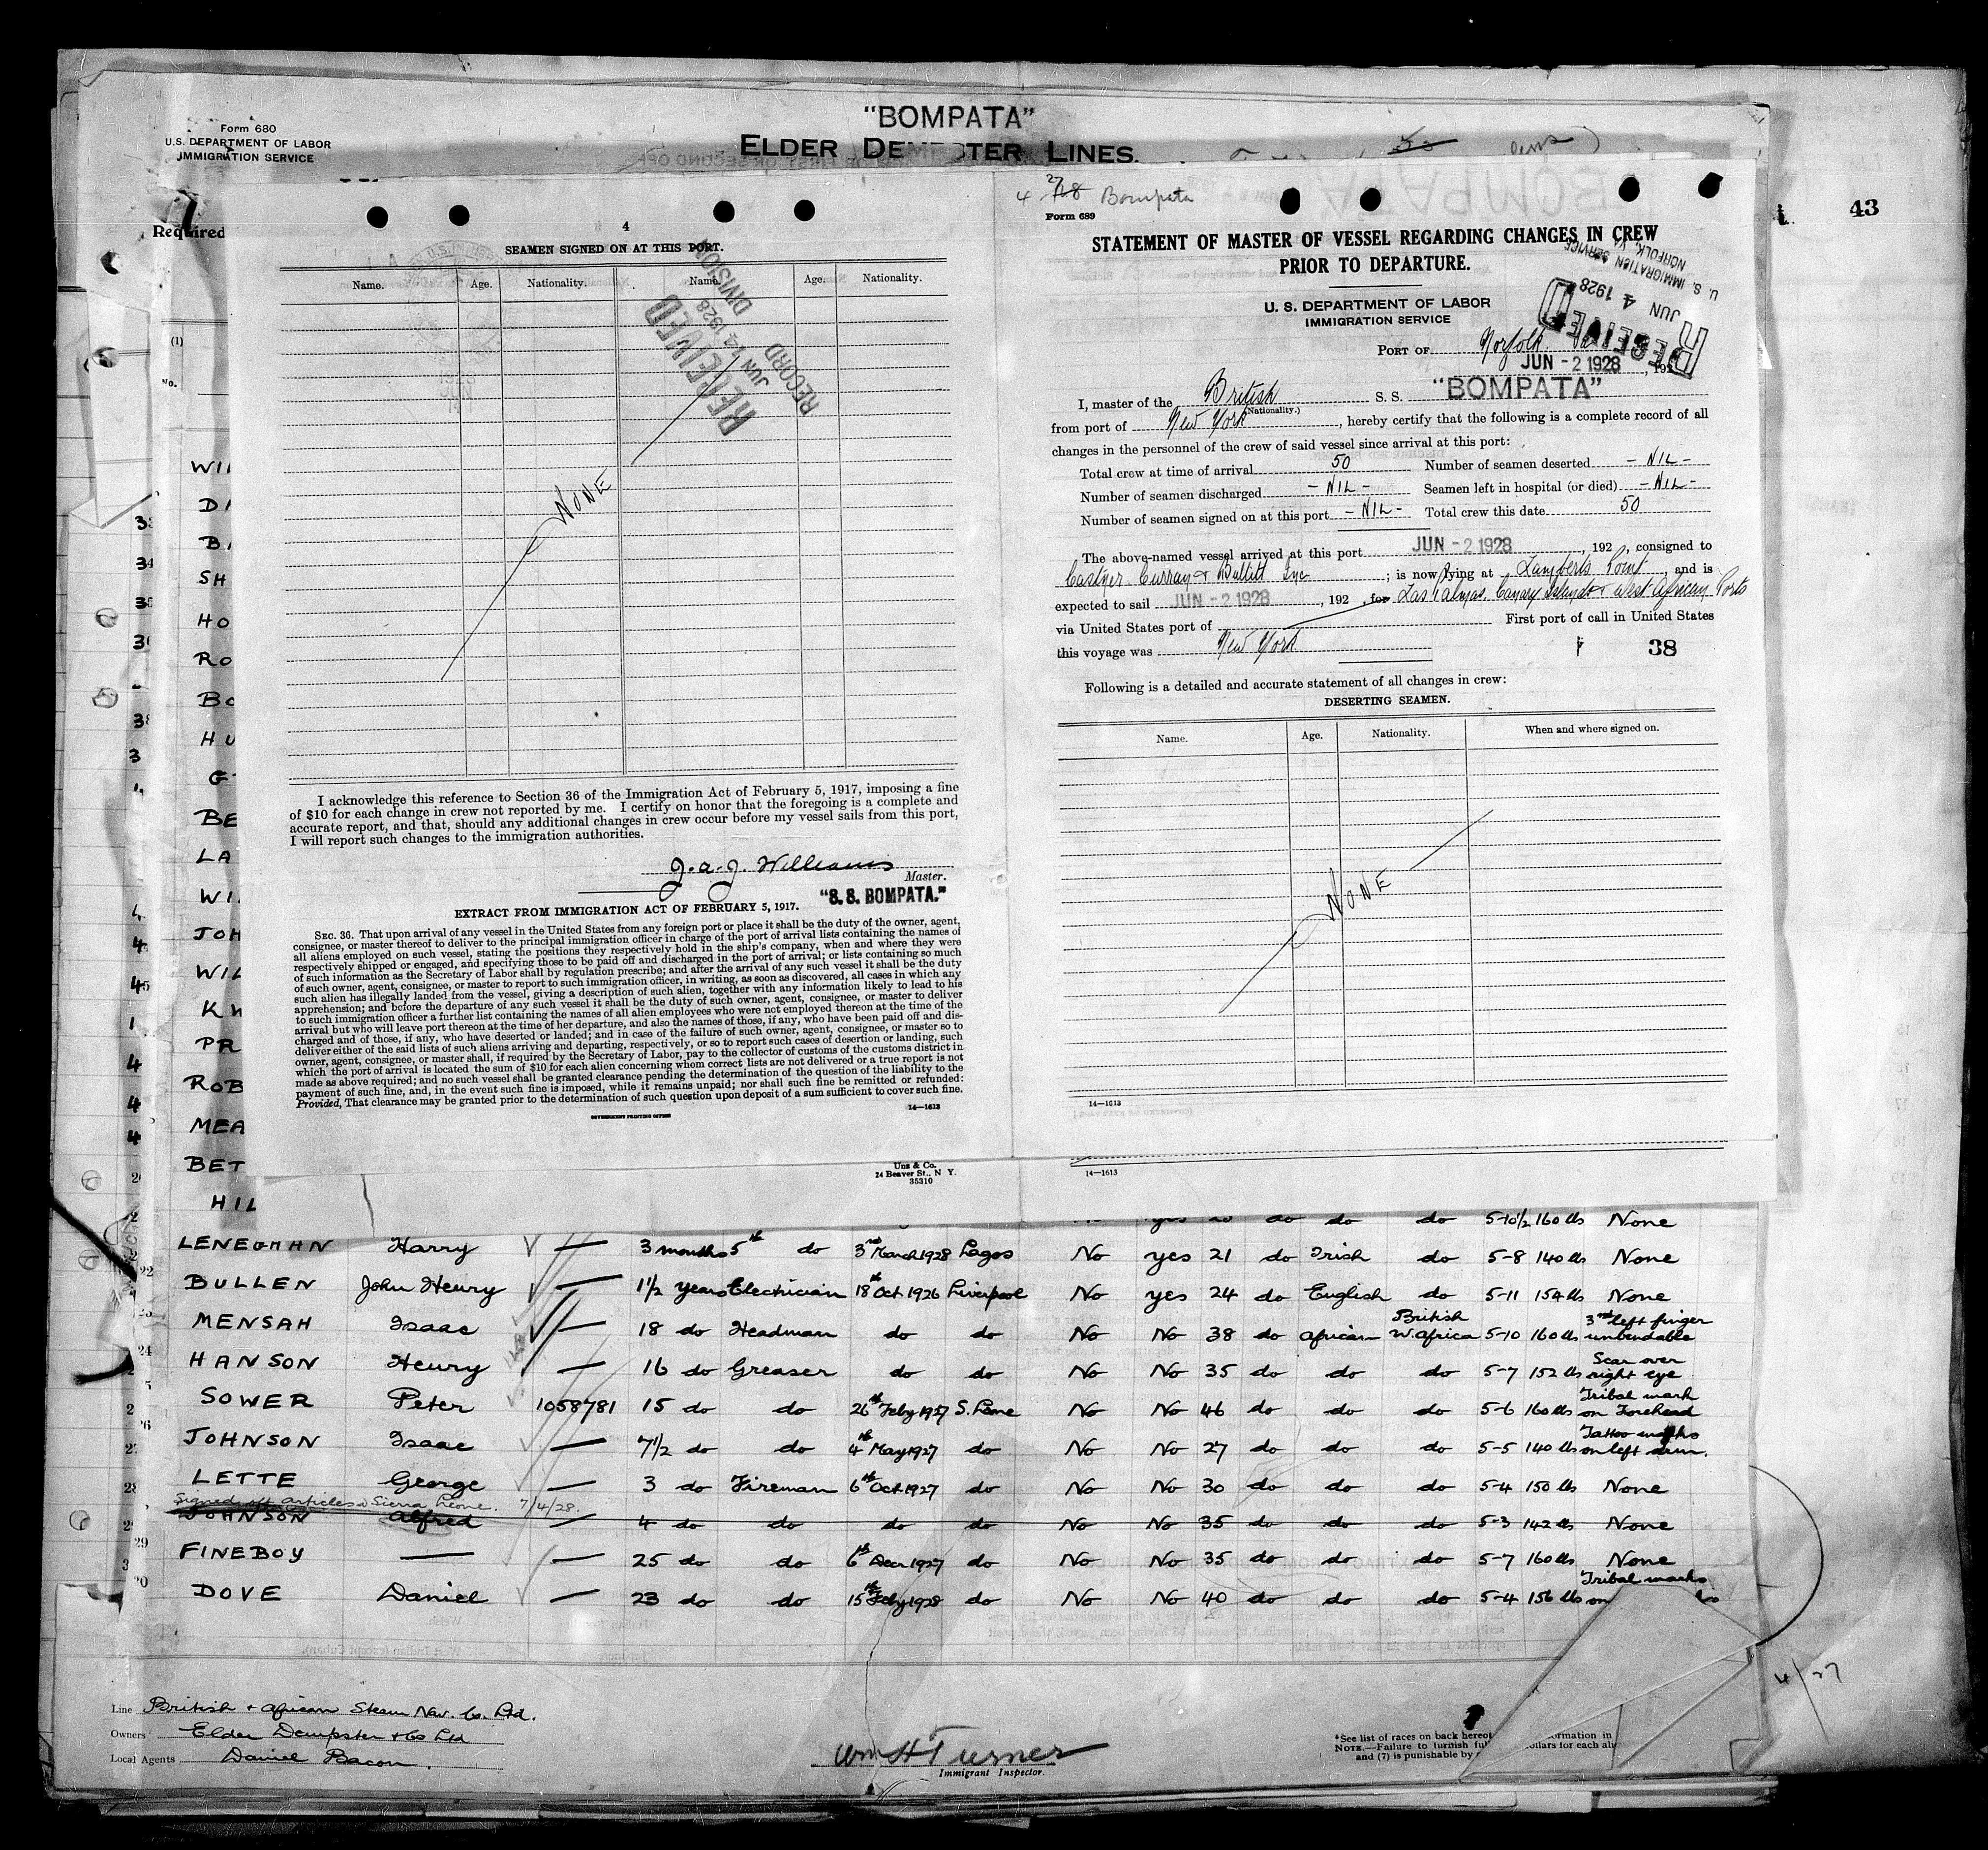 "BOMPATA"
Form 680
U.S. DEPARTMENT OF LABOR
IMMIGRATION SERVICE
ELDER DEMPSTER LINES.
Required
43
(1)
No.
4
SEAMEN SIGNED ON AT THIS PORT.
Name. Age. Nationality. Name. Age. Nationality.
RECEIVED
JUN 14 1928
RECORD
DIVISION
NONE
I acknowledge this reference to Section 36 of the Immigration Act of February 5, 1917, imposing a fine
of $10 for each change in crew not reported by me. I certify on honor that the foregoing is a complete and
accurate report, and that, should any additional changes in crew occur before my vessel sails from this port,
I will report such changes to the immigration authorities.
J. A. J. Williams
Master.
"S. S. BOMPATA."
EXTRACT FROM IMMIGRATION ACT OF FEBRUARY 5, 1917.
SEC. 36. That upon arrival of any vessel in the United States from any foreign port or place it shall be the duty of the owner, agent,
consignee, or master thereof to deliver to the principal immigration officer in charge of the port of arrival lists containing the names of
all aliens employed on such vessel, stating the positions they respectively hold in the ship's company, when and where they were
respectively shipped or engaged, and specifying those to be paid off and discharged in the port of arrival; or lists containing so much
of such information as the Secretary of Labor shall by regulation prescribe; and after the arrival of any such vessel it shall be the duty
of such owner, agent, consignee, or master to report to such immigration officer, in writing, as soon as discovered, all cases in which any
such alien has illegally landed from the vessel, giving a description of such alien, together with any information likely to lead to his
apprehension; and before the departure of any such vessel it shall be the duty of such owner, agent, consignee, or master to deliver
to such immigration officer a further list containing the names of all alien employees who were not employed thereon at the time of the
arrival but who will leave port thereon at the time of her departure, and also the names of those, if any, who have been paid off and dis-
charged and of those, if any, who have deserted or landed; and in case of the failure of such owner, agent, consignee, or master so to
deliver either of the said lists of such aliens arriving and departing, respectively, or so to report such cases of desertion or landing, such
owner, agent, consignee, or master shall, if required by the Secretary of Labor, pay to the collector of customs of the customs district in
which the port of arrival is located the sum of $10 for each alien concerning whom correct lists are not delivered or a true report is not
made as above required; and no such vessel shall be granted clearance pending the determination of the question of the liability to the
payment of such fine, and, in the event such fine is imposed, while it remains unpaid; nor shall such fine be remitted or refunded:
Provided, That clearance may be granted prior to the determination of such question upon deposit of a sum sufficient to cover such fine.
14—1613
GOVERNMENT PRINTING OFFICE
Unz & Co.
24 Beaver St., N Y.
35310
4 27 Bompata
Form 689
STATEMENT OF MASTER OF VESSEL REGARDING CHANGES IN CREW
PRIOR TO DEPARTURE.
U. S. IMMIGRATION SERVICE
NORFOLK, VA.
JUN 4 1928
RECEIVED
U. S. DEPARTMENT OF LABOR
IMMIGRATION SERVICE
PORT OF Norfolk Va
JUN - 2 1928 , 192
I, master of the British S. S. "BOMPATA"
(Nationality.)
from port of New York , hereby certify that the following is a complete record of all
changes in the personnel of the crew of said vessel since arrival at this port:
Total crew at time of arrival 50 Number of seamen deserted - NIL -
Number of seamen discharged - NIL - Seamen left in hospital (or died) - NIL -
Number of seamen signed on at this port - NIL - Total crew this date 50
The above-named vessel arrived at this port JUN - 2 1928 , 192 , consigned to
Castner Curran & Bullitt Inc ; is now lying at Lamberts Point , and is
expected to sail JUN - 2 1928 , 192 , for Las Palmas, Canary Islands & West African Ports
via United States port of First port of call in United States
this voyage was New York 38
Following is a detailed and accurate statement of all changes in crew:
DESERTING SEAMEN.
Name. Age. Nationality. When and where signed on.
NONE
14—1613
14—1613
WIL
DA
BA
SH
HO
RO
BO
HU
G
BE
LA
WI
JOH
WIL
KW
PR
ROB
MEA
BET
HIL
yes do do do 5-10 1/2 160 lbs None
LENEGHAN Harry — 3 months 5th do 3rd March 1928 Lagos No yes 21 do Irish do 5-8 140 lbs None
BULLEN John Henry — 1 1/2 years Electrician 18th Oct 1926 Liverpool No yes 24 do English do 5-11 154 lbs None
MENSAH Isaac — 18 do Headman do do No No 38 do African British W. Africa 5-10 160 lbs 3rd left finger unbendable
HANSON Henry — 16 do Greaser do do No No 35 do do do 5-7 152 lbs Scar over right eye
SOWER Peter 1058781 15 do do 26th Feby 1927 S. Leone No No 46 do do do 5-6 160 lbs Tribal mark on Forehead
JOHNSON Isaac — 7 1/2 do do 4th May 1927 do No No 27 do do do 5-5 140 lbs Tattoo marks on left arm.
LETTE George — 3 do Fireman 6th Oct 1927 do No No 30 do do do 5-4 150 lbs None
Signed off articles Sierra Leone. 7/4/28.
JOHNSON Alfred — 4 do do do do No No 35 do do do 5-3 142 lbs None
FINEBOY — — 25 do do 6th Decr 1927 do No No 35 do do do 5-7 160 lbs None
DOVE Daniel — 23 do do 15th Feby 1928 do No No 40 do do do 5-4 156 lbs Tribal marks on
4/27
Line British & African Steam Nav. Co. Ltd.
Owners Elder Dempster & Co Ltd
Local Agents Daniel Bacon.
Wm H Turner
Immigrant Inspector.
*See list of races on back hereof
NOTE.—Failure to furnish
and (7) is punishable by